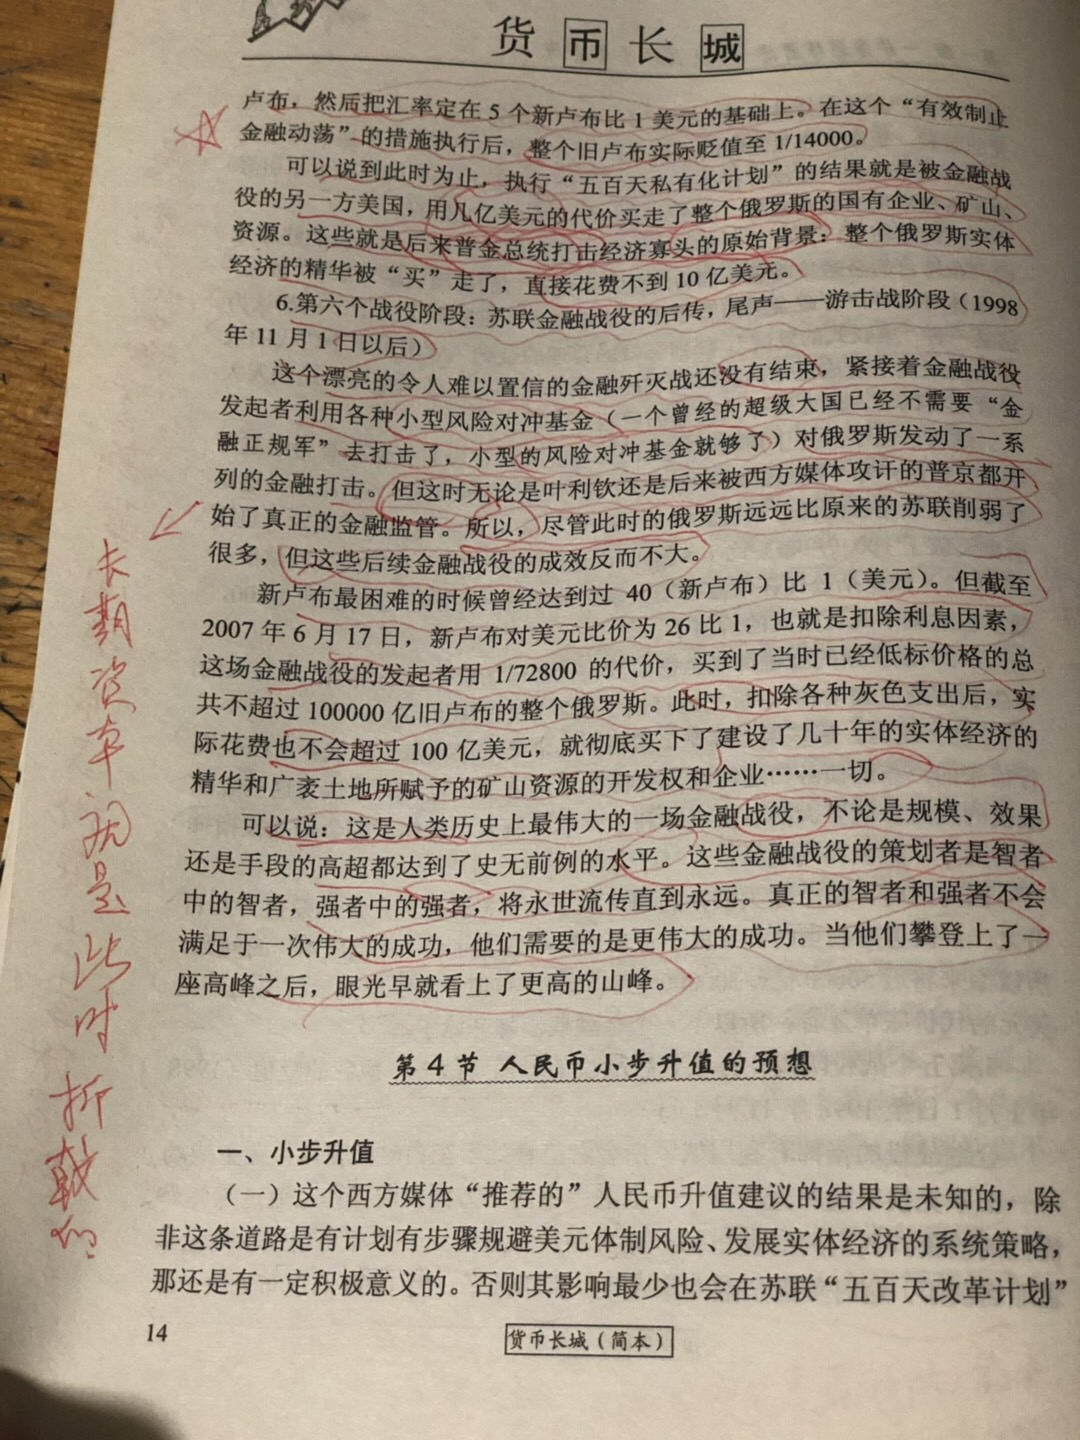 货币长城
卢布，然后把汇率定在 5 个新卢布比 1 美元的基础上。在这个“有效制止
金融动荡”的措施执行后，整个旧卢布实际贬值至 1/14000。
可以说到此时为止，执行“五百天私有化计划”的结果就是被金融战
役的另一方美国，用几亿美元的代价买走了整个俄罗斯的国有企业、矿山、
资源。这些就是后来普金总统打击经济寡头的原始背景：整个俄罗斯实体
经济的精华被“买”走了，直接花费不到 10 亿美元。
6.第六个战役阶段：苏联金融战役的后传，尾声——游击战阶段（1998
年 11 月 1 日以后）
这个漂亮的令人难以置信的金融歼灭战还没有结束，紧接着金融战役
发起者利用各种小型风险对冲基金（一个曾经的超级大国已经不需要“金
融正规军”去打击了，小型的风险对冲基金就够了）对俄罗斯发动了一系
列的金融打击。但这时无论是叶利钦还是后来被西方媒体攻讦的普京都开
始了真正的金融监管。所以，尽管此时的俄罗斯远远比原来的苏联削弱了
很多，但这些后续金融战役的成效反而不大。
新卢布最困难的时候曾经达到过 40（新卢布）比 1（美元）。但截至
2007 年 6 月 17 日，新卢布对美元比价为 26 比 1，也就是扣除利息因素，
这场金融战役的发起者用 1/72800 的代价，买到了当时已经低标价格的总
共不超过 100000 亿旧卢布的整个俄罗斯。此时，扣除各种灰色支出后，实
际花费也不会超过 100 亿美元，就彻底买下了建设了几十年的实体经济的
精华和广袤土地所赋予的矿山资源的开发权和企业……一切。
可以说：这是人类历史上最伟大的一场金融战役，不论是规模、效果
还是手段的高超都达到了史无前例的水平。这些金融战役的策划者是智者
中的智者，强者中的强者，将永世流传直到永远。真正的智者和强者不会
满足于一次伟大的成功，他们需要的是更伟大的成功。当他们攀登上了一
座高峰之后，眼光早就看上了更高的山峰。
第 4 节 人民币小步升值的预想
一、小步升值
（一）这个西方媒体“推荐的”人民币升值建议的结果是未知的，除
非这条道路是有计划有步骤规避美元体制风险、发展实体经济的系统策略，
那还是有一定积极意义的。否则其影响最少也会在苏联“五百天改革计划”
14
货币长城（简本）
长期资本
是此时